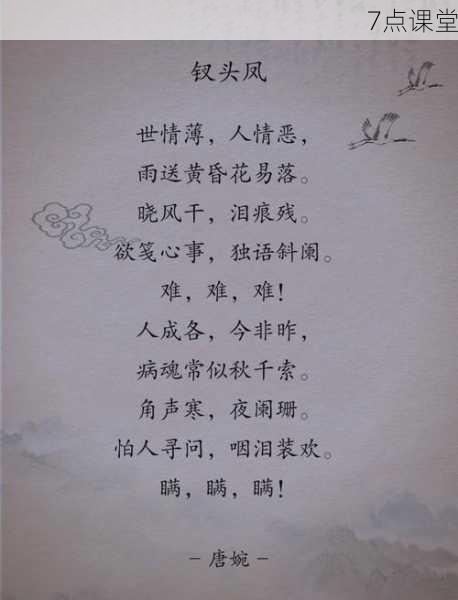 7点课堂
钗头凤
世情薄，人情恶，
雨送黄昏花易落。
晓风干，泪痕残。
欲笺心事，独语斜阑。
难，难，难！
人成各，今非昨，
病魂常似秋千索。
角声寒，夜阑珊。
怕人寻问，咽泪装欢。
瞒，瞒，瞒！
– 唐婉 –